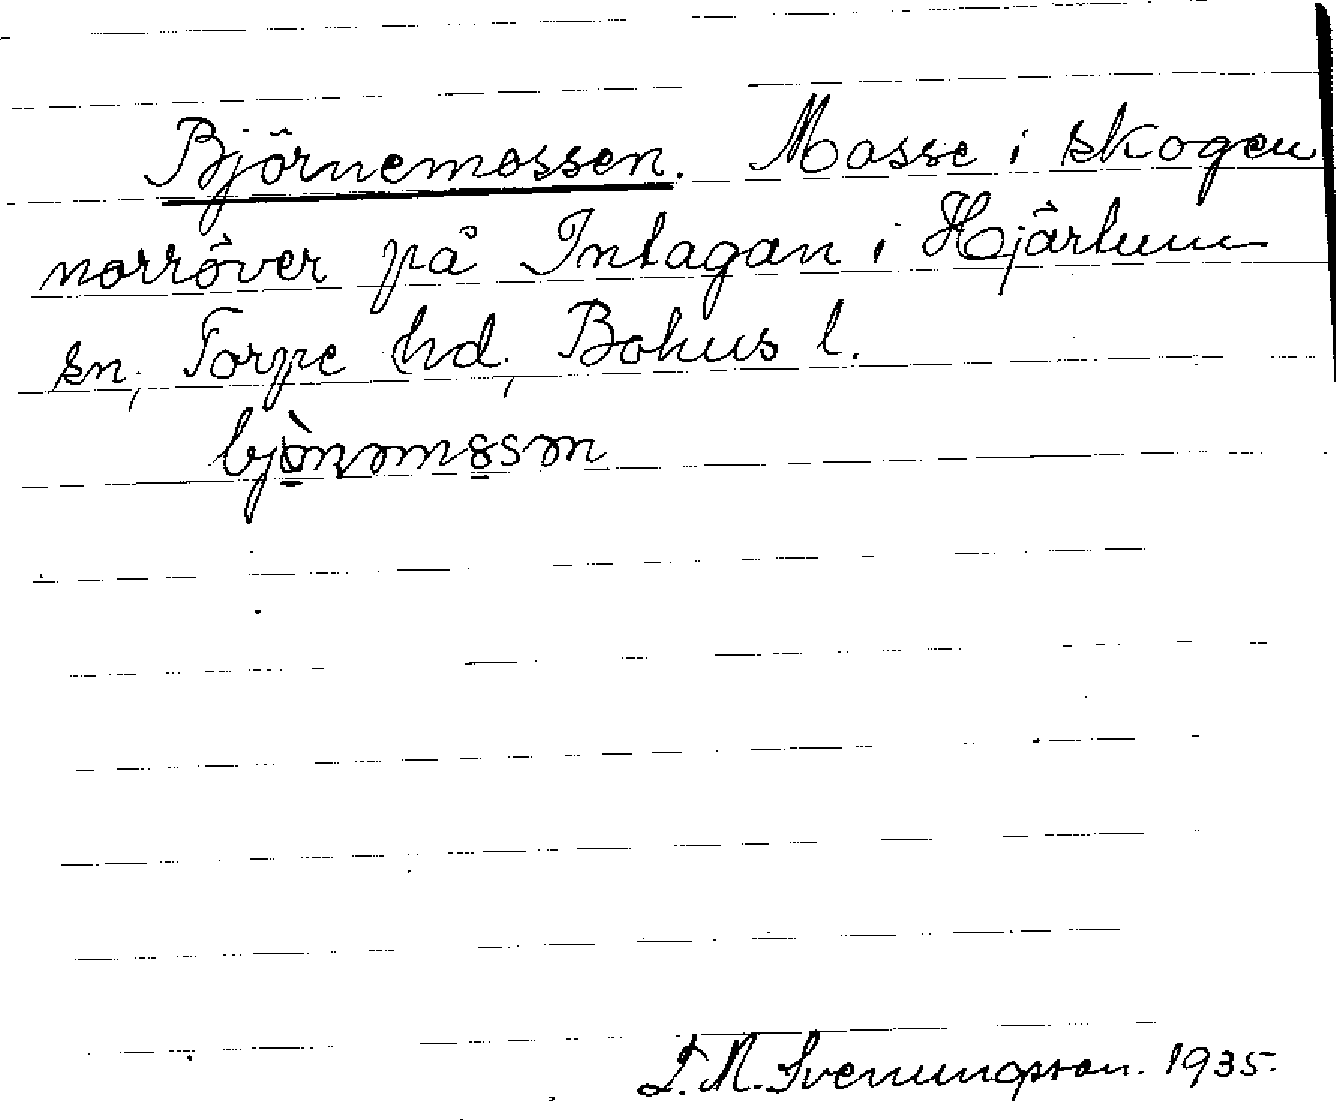 Björnemossen. Mosse i skogen
norröver på Intagan i Hjärtum
sn, Torpe hd, Bohus l.
T. M. Svenungsson. 1935.